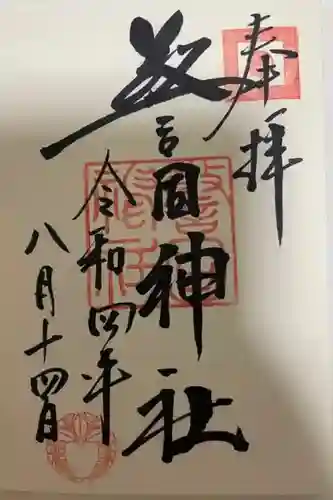 奉拝
警固神社
令和四年
八月十四日